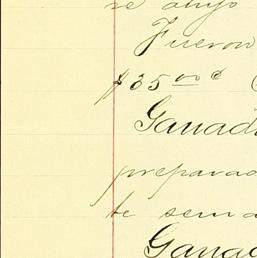 se
Fueron
$35.00 ¢
Ganad
preparad
te sema
Ganad